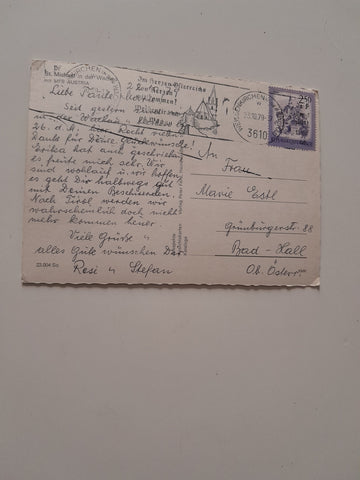 St. Michael in der Wachau
AUSTRIA
Im Herzen Österreichs
WEISSENKIRCHEN
23.10.79
3610
2.50 S
Liebe Tante
Seit gestern
in der Wachau
26. d. M. Recht vielen
Dank für Deine Glückwünsche!
Erika hat auch geschrieben
es freute mich sehr. Wir
sind wohlauf u. wir hoffen
es geht Dir halbwegs gut
mit Deinen Beschwerden.
Nach Tirol werden wir
wahrscheinlich doch nicht
mehr kommen heuer.
Viele Grüße
alles Gute wünschen Dir
Resi u Stefan
22.004 Sc
An
Frau
Marie Estl
Grünburgerstr 88
Bad-Hall
Ob. Österr.